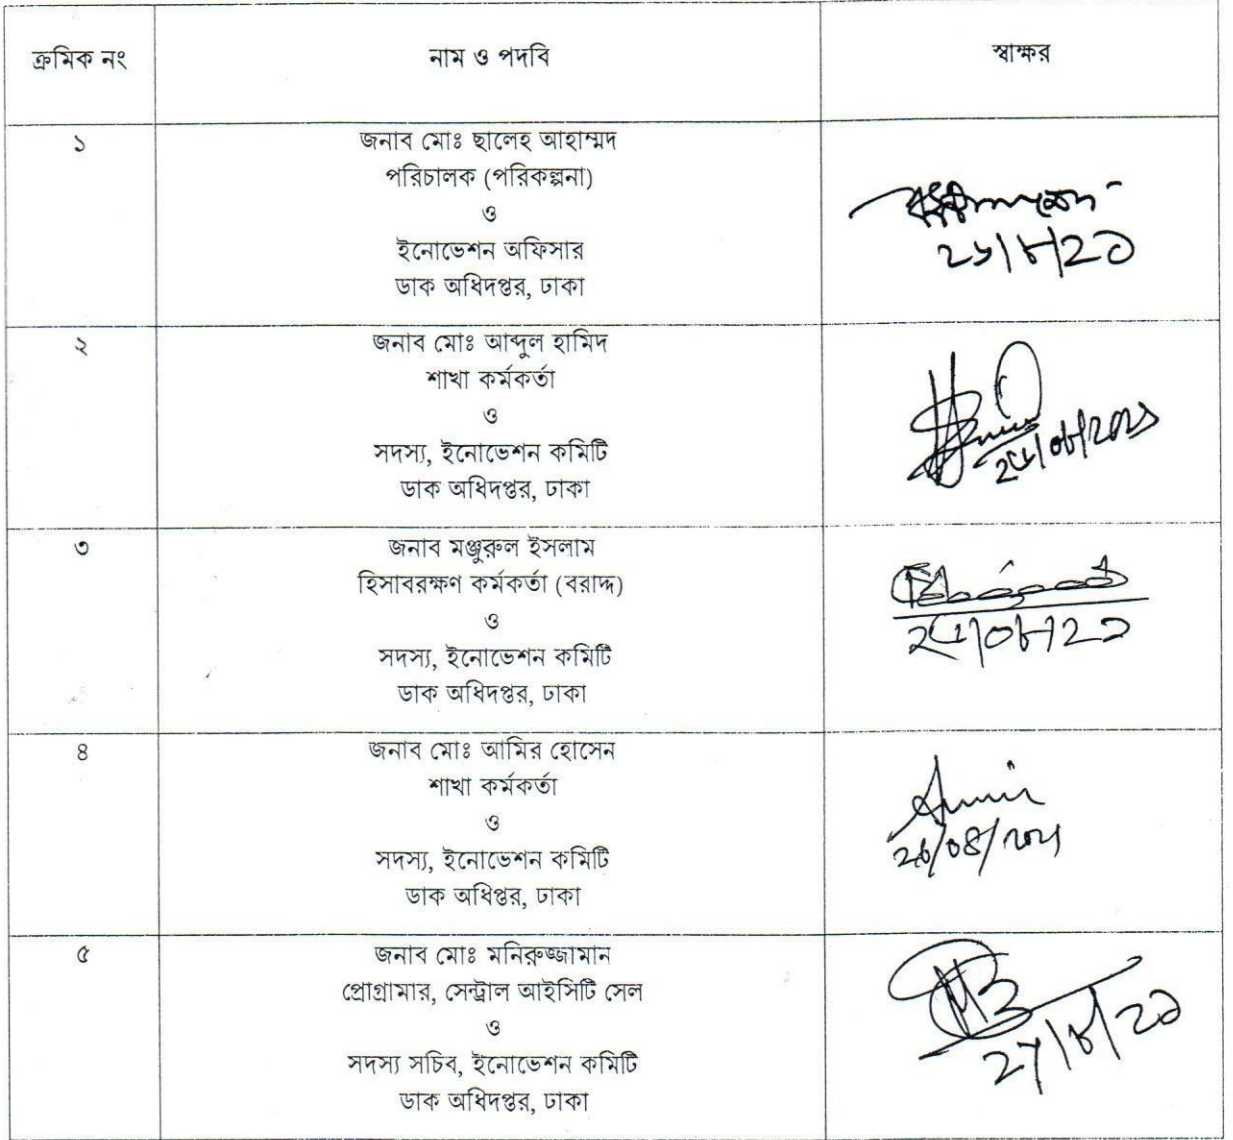 ক্রমিক নং নাম ও পদবি স্বাক্ষর
১ জনাব মোঃ ছালেহ আহাম্মদ
পরিচালক (পরিকল্পনা)
ও
ইনোভেশন অফিসার
ডাক অধিদপ্তর, ঢাকা
২ জনাব মোঃ আব্দুল হামিদ
শাখা কর্মকর্তা
ও
সদস্য, ইনোভেশন কমিটি
ডাক অধিদপ্তর, ঢাকা
৩ জনাব মঞ্জুরুল ইসলাম
হিসাবরক্ষণ কর্মকর্তা (বরাদ্দ)
ও
সদস্য, ইনোভেশন কমিটি
ডাক অধিদপ্তর, ঢাকা
৪ জনাব মোঃ আমির হোসেন
শাখা কর্মকর্তা
ও
সদস্য, ইনোভেশন কমিটি
ডাক অধিপ্তর, ঢাকা
৫ জনাব মোঃ মনিরুজ্জামান
প্রোগ্রামার, সেন্ট্রাল আইসিটি সেল
ও
সদস্য সচিব, ইনোভেশন কমিটি
ডাক অধিদপ্তর, ঢাকা